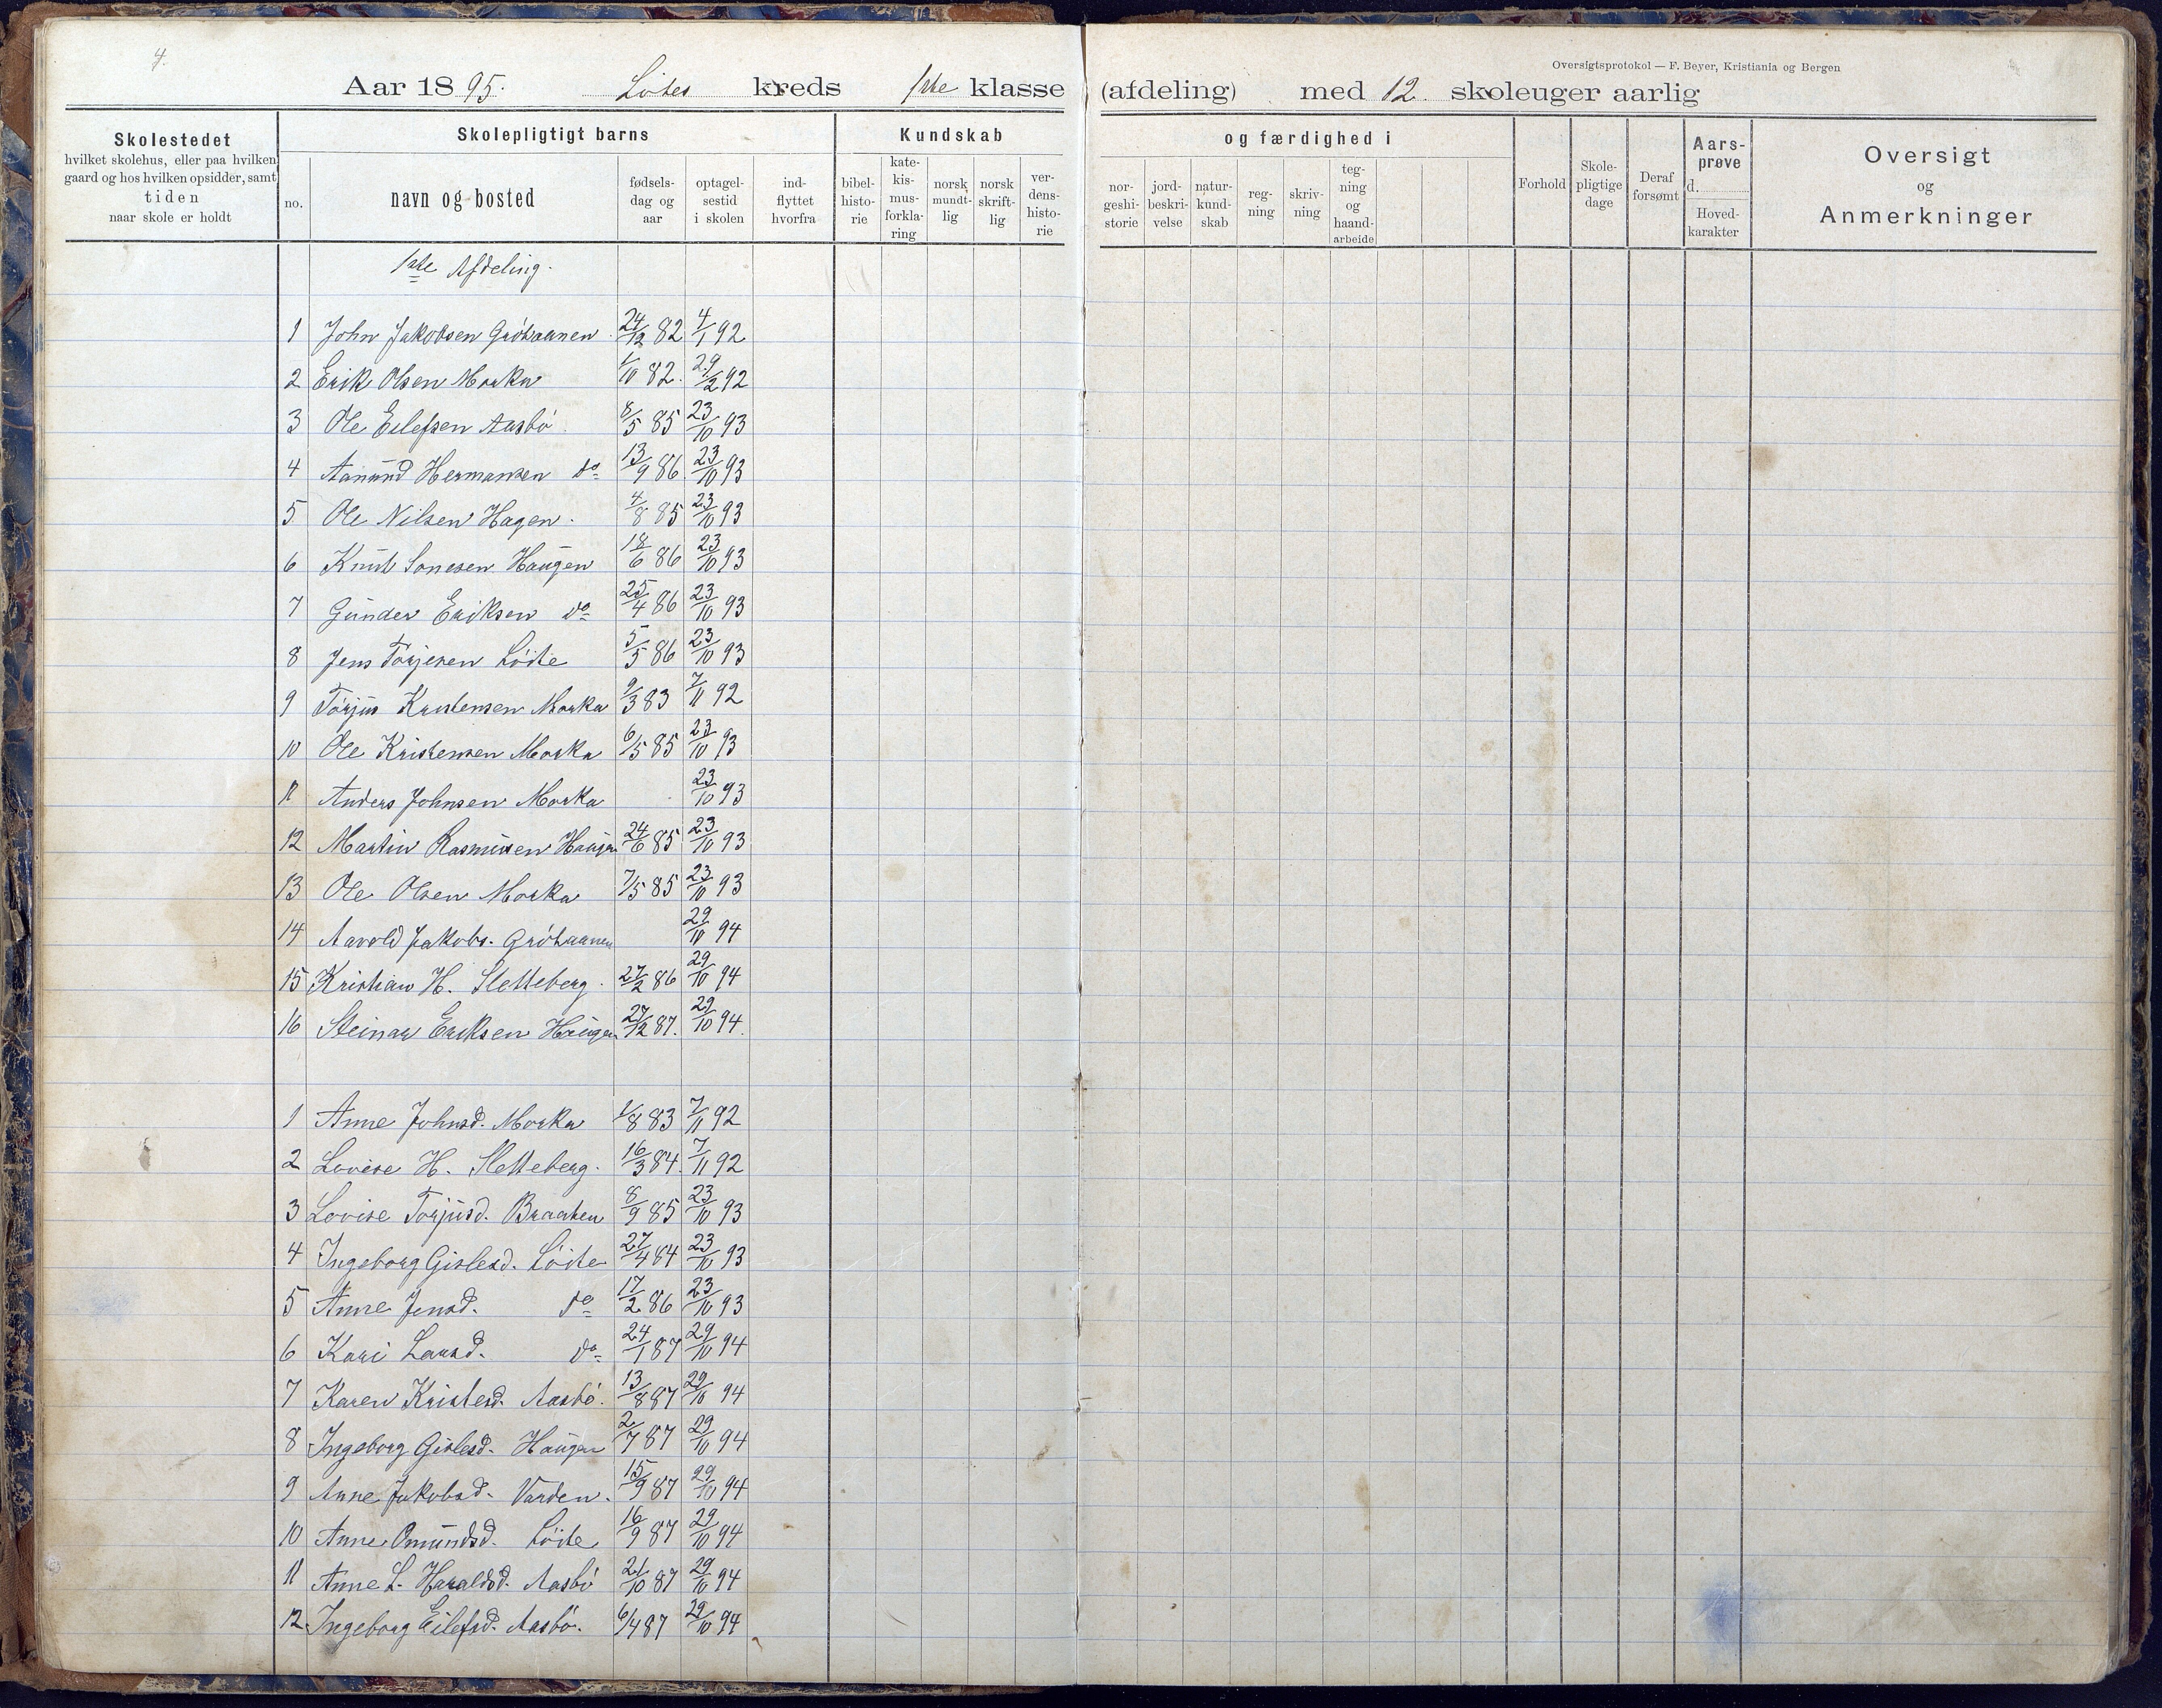 4.
Oversigtsprotokol — F. Beyer, Kristiania og Bergen
Aar 1895. Löites kreds 1ste klasse (afdeling) med 12 skoleuger aarlig
Skolestedet
hvilket skolehus, eller paa hvilken
gaard og hos hvilken opsidder, samt
tiden
naar skole er holdt
Skolepligtigt barns
no.
navn og bosted
fødsels-
dag og
aar
optagel-
sestid
i skolen
ind-
flyttet
hvorfra
Kundskab
bibel-
histo-
rie
kate-
kis-
mus-
forkla-
ring
norsk
mundt-
lig
norsk
skrift-
lig
ver-
dens-
histo-
rie
og færdighed i
nor-
geshi-
storie
jord-
beskri-
velse
natur-
kund-
skab
reg-
ning
skriv-
ning
teg-
ning
og
haand-
arbeide
Forhold
Skole-
pligtige
dage
Deraf
forsømt
Aars-
prøve
d.
Hoved-
karakter
Oversigt
og
Anmerkninger
1ste Afdeling.
1 John Jakobsen Grötaanen 24/12 82 4/1 92
2 Erik Olsen Morka 1/10 82. 29/2 92
3 Ole Eilefsen Aasbö 8/5 85 23/10 93
4 Aanund Hermansen do 13/9 86 23/10 93
5 Ole Nilsen Hagen. 4/8 85 23/10 93
6 Knut Sonesen Haugen 18/6 86 23/10 93
7 Gunder Eriksen do 25/4 86 23/10 93
8 Jens Torjesen Löite 5/5 86 23/10 93
9 Torjus Kristensen Morka 9/3 83 7/11 92
10 Ole Kristensen Morka 6/5 85 23/10 93
11 Anders Johnsen Morka 23/10 93
12 Martin Rasmusen Haugen 24/6 85 23/10 93
13 Ole Olsen Morka 7/5 85 23/10 93
14 Aavold Jakobs. Grötaanen 29/10 94
15 Kristian H. Sletteberg. 27/2 86 29/10 94
16 Steinar Eriksen Haugen 27/12 87. 29/10 94.
1 Anne Johnsd. Morka 1/8 83 7/11 92
2 Lovise H. Sletteberg. 16/3 84. 7/11 92
3 Lovise Torjusd. Braaten 8/9 85 23/10 93
4 Ingeborg Gislesd. Löite 27/4 84 23/10 93
5 Anne Jensd. do 17/2 86 23/10 93
6 Kari Larsd. do 24/1 87 29/10 94
7 Karen Kristesd. Aasbö. 13/8 87 29/10 94
8 Ingeborg Gislesd. Haugen 2/7 87 29/10 94
9 Anne Jakobsd. Varden. 15/9 87 29/10 94
10 Anne Omundsd. Löite 16/9 87 29/10 94
11 Anne L. Haraldsd. Aasbö 21/10 87 29/10 94
12 Ingeborg Eilefsd. Aasbö. 6/4 87 29/10 94